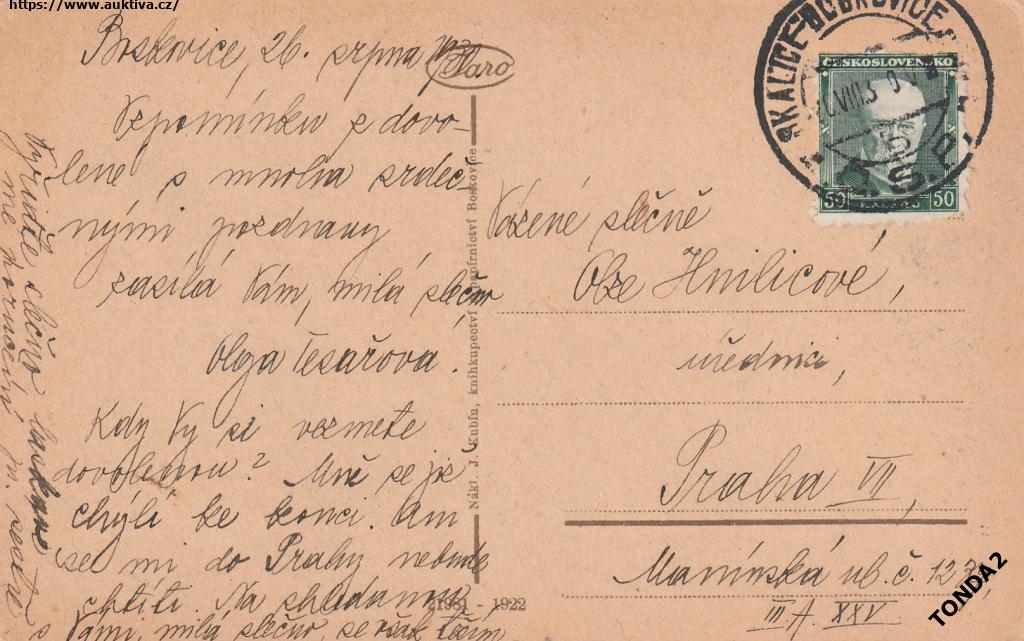 https://www.auktiva.cz/
Boskovice, 26. srpna 1930
Vzpomínku z dovo-
lené s mnoha srdeč-
nými pozdravy
zasílá Vám, milá slečno
Olga Tesařová.
Kdy Vy si vezmete
dovolenou? Mně se již
chýlí ke konci. Ani
se mi do Prahy nebude
chtíti. Na shledanou
s Vámi, milá slečno, se však těším
Vyřiďte slečno laskavě
mé poručení sestře
Daro
Nákl. J. Kubín, knihkupectví papírnictví Boskovice
21981 - 1922
SKALICE-BOSKOVICE
ČESKOSLOVENSKO
50 50
Vážené slečně
Olze Hnilicové,
úřednici,
Praha VII,
Maninská ul. č. 123
III. A. XXV
TONDA2